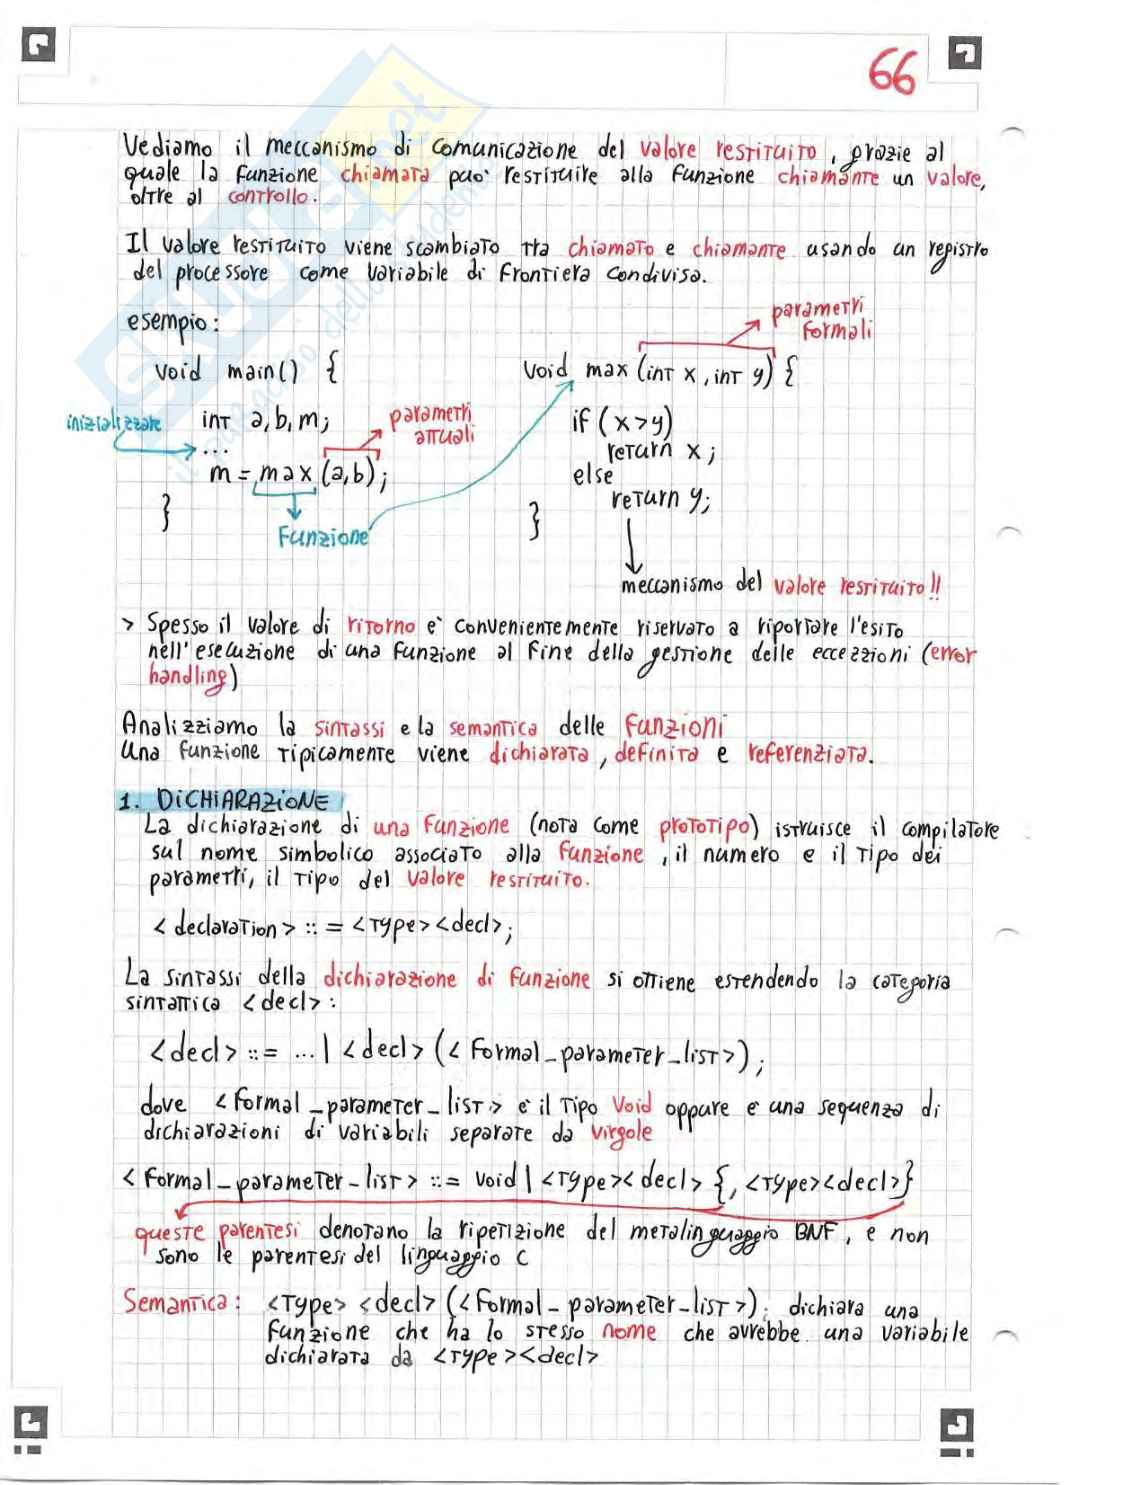 66
Vediamo il meccanismo di comunicazione del valore restituito, grazie al
quale la funzione chiamata puo' restituire alla funzione chiamante un valore,
oltre al controllo.
Il valore restituito viene scambiato tra chiamato e chiamante usando un registro
del processore come variabile di frontiera condivisa.
esempio:
parametri
formali
void main() {
void max (int x, int y) {
inizializzare
int a,b,m;
parametri
attuali
...
m = max (a,b);
}
Funzione
if (x>y)
return x;
else
return y;
}
meccanismo del valore restituito!!
> Spesso il valore di ritorno e' convenientemente riservato a riportare l'esito
nell'esecuzione di una funzione al fine della gestione delle eccezzioni (error
handling)
Analizziamo la sintassi e la semantica delle funzioni
Una funzione tipicamente viene dichiarata, definita e referenziata.
1. DiCHiARAZioNE
La dichiarazione di una funzione (nota come prototipo) istruisce il compilatore
sul nome simbolico associato alla funzione, il numero e il tipo dei
parametri, il tipo del valore restituito.
<declaration> ::= <type><decl>;
La sintassi della dichiarazione di funzione si ottiene estendendo la categoria
sintattica <decl>:
<decl> ::= ...| <decl> (<formal_parameter_list>);
dove <formal_parameter_list> e' il tipo void oppure e' una sequenza di
dichiarazioni di variabili separate da virgole
<formal_parameter_list> ::= void | <type><decl> {, <type><decl>}
queste parentesi denotano la ripetizione del metalinguaggio BNF, e non
sono le parentesi del linguaggio C
Semantica: <type> <decl> (<formal_parameter_list>); dichiara una
funzione che ha lo stesso nome che avrebbe una variabile
dichiarata da <type><decl>